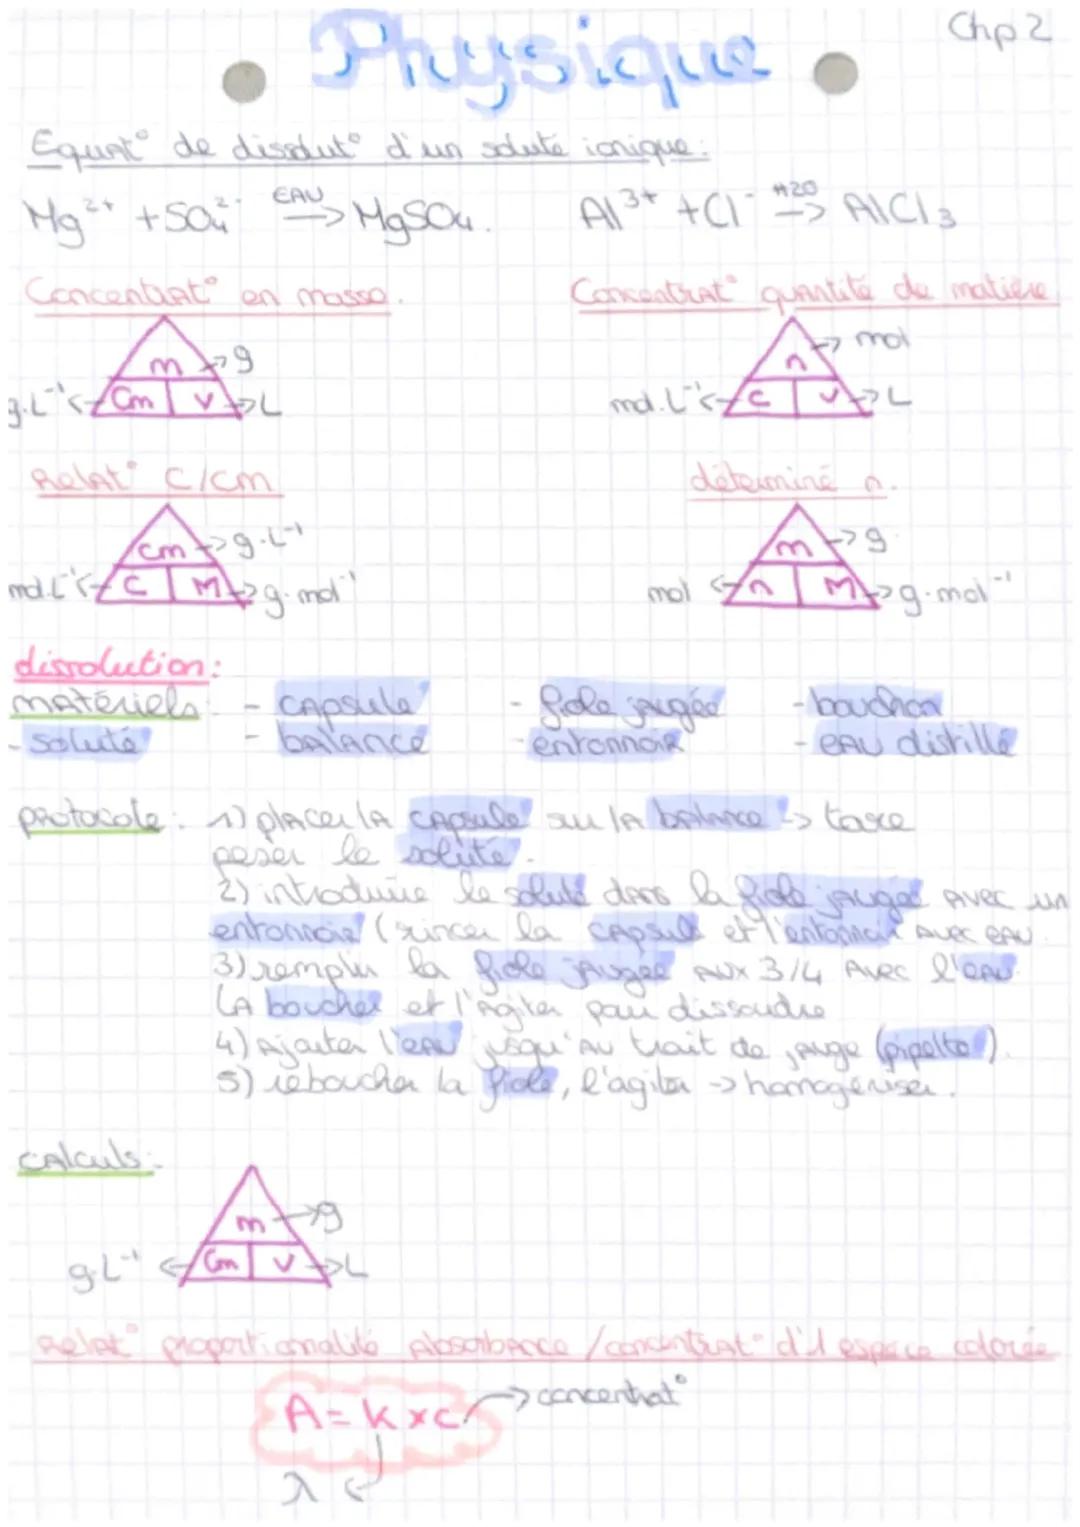 Physique
Chp 2
Equat° de dissolut° d'un soluté ionique :
Mg²⁺ + SO₄²⁻ EAU → MgSO₄. Al³⁺ + Cl⁻ H2O → AlCl₃
Concentrat° en masse. Concentrat° quantité de matière
m → g n → mol
g.L⁻¹ ← Cm V → L mol.L⁻¹ ← C V → L
Relat° C/Cm déterminé n.
Cm → g.L⁻¹ m → g
mol.L⁻¹ ← C M → g.mol⁻¹ mol ← n M → g.mol⁻¹
dissolution :
matériels - capsule - fiole jaugée - bouchon
- soluté - balance - entonnoir - eau distillé
protocole : 1) placer la capsule sur la balance → tare
peser le soluté.
2) introduire le soluté dans la fiole jaugée avec un
entonnoir (rincer la capsule et l'entonnoir avec eau
3) remplir la fiole jaugée aux 3/4 avec l'eau.
La boucher et l'agiter pour dissoudre
4) ajouter l'eau jusqu'au trait de jauge (pipette).
5) reboucher la fiole, l'agiter → homogénéiser.
calculs :
m → g
g.L⁻¹ ← Cm V → L
Relat° proportionnalité absorbance / concentrat° d'1 espèce colorée
A = k × c → concentrat°
λ ←